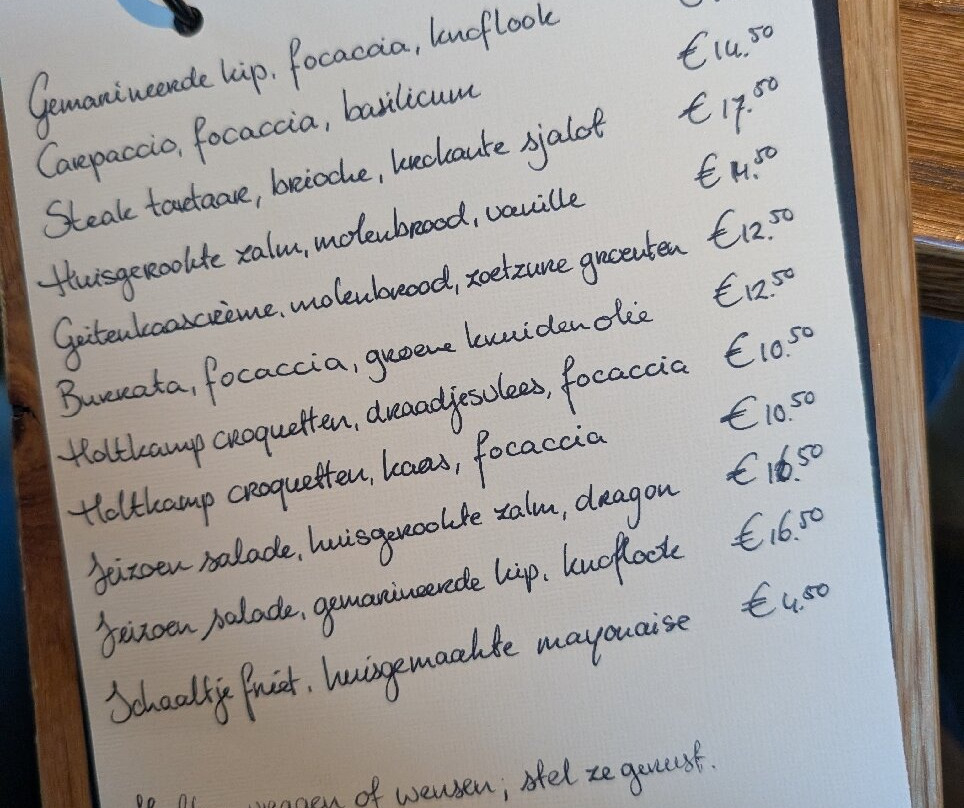 Gemarineerde kip, focaccia, knoflook
Carpaccio, focaccia, basilicum €14.50
Steak tartaar, brioche, krokante sjalot €17.50
Huisgerookte zalm, molenbrood, vanille €14.50
Geitenkaascrème, molenbrood, zoetzure groenten €12.50
Burrata, focaccia, groene kruidenolie €12.50
Holtkamp croquetten, draadjesvlees, focaccia €10.50
Holtkamp croquetten, kaas, focaccia €10.50
Seizoen salade, huisgerookte zalm, dragon €16.50
Seizoen salade, gemarineerde kip, knoflook €16.50
Schaaltje friet, huisgemaakte mayonaise €4.50
vragen of wensen, stel ze gerust.